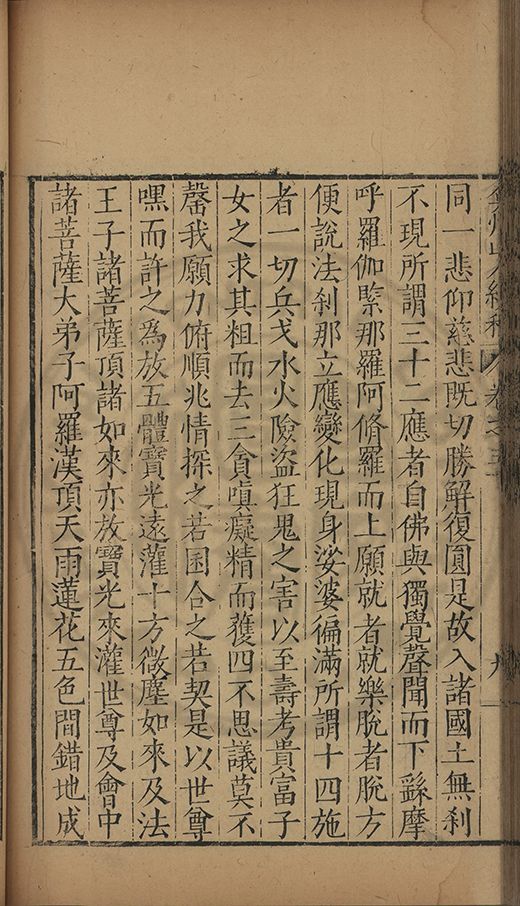 同一悲仰慈悲既切勝解復圓是故入諸國土無刹
不現所謂三十二應者自佛與獨覺聲聞而下繇摩
呼羅伽緊那羅阿脩羅而上願就者就樂脫者脫方
便說法刹那立應變化現身娑婆徧滿所謂十四施
者一切兵戈水火險盜狂鬼之害以至壽考貴富子
女之求其粗而去三貪嗔癡精而獲四不思議莫不
罄我願力俯順兆情探之若囷合之若契是以世尊
嘿而許之爲放五體寶光遠灌十方微塵如來及法
王子諸菩薩頂諸如來亦放寶光來灌世尊及會中
諸菩薩大弟子阿羅漢頂天雨蓮花五色間錯地成